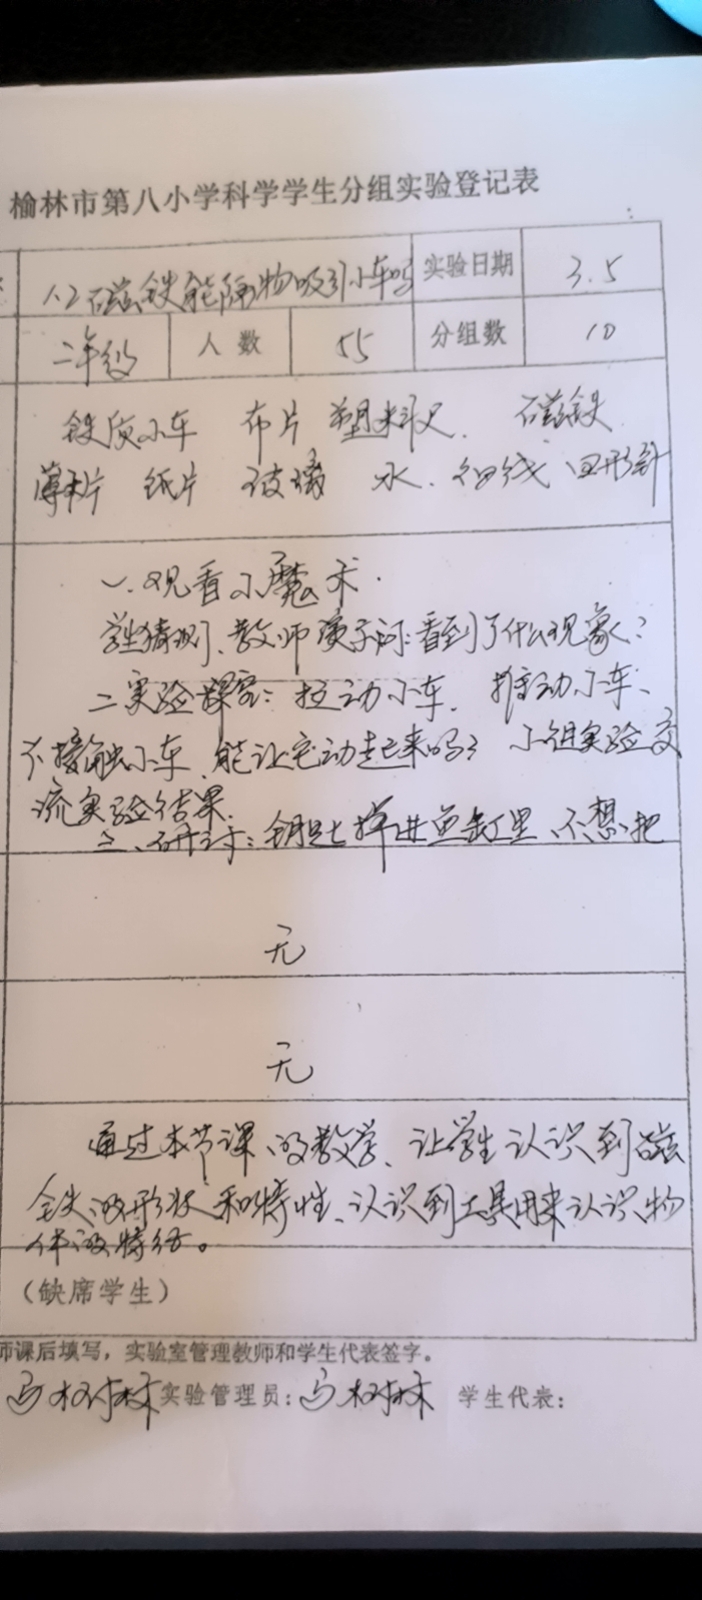 榆林市第八小学科学学生分组实验登记表
1.2磁铁能隔物吸引小车吗 实验日期 3.5
二年级 人数 55 分组数 10
铁质小车 布片 塑料尺. 磁铁
薄木片 纸片 玻璃 水. 细线 回形针
一.观看小魔术.
学生猜测、教师演示问:看到了什么现象?
二实验探究:拉动小车. 推动小车、
不接触小车、能让它动起来吗? 小组实验交
流实验结果.
三、研讨:钥匙掉进鱼缸里、不想把
无
无
通过本节课的教学、让学生认识到磁
铁的形状和特性、认识到工具用来认识物
体的特征。
(缺席学生)
师课后填写,实验室管理教师和学生代表签字。
马树林 实验管理员:马树林 学生代表: